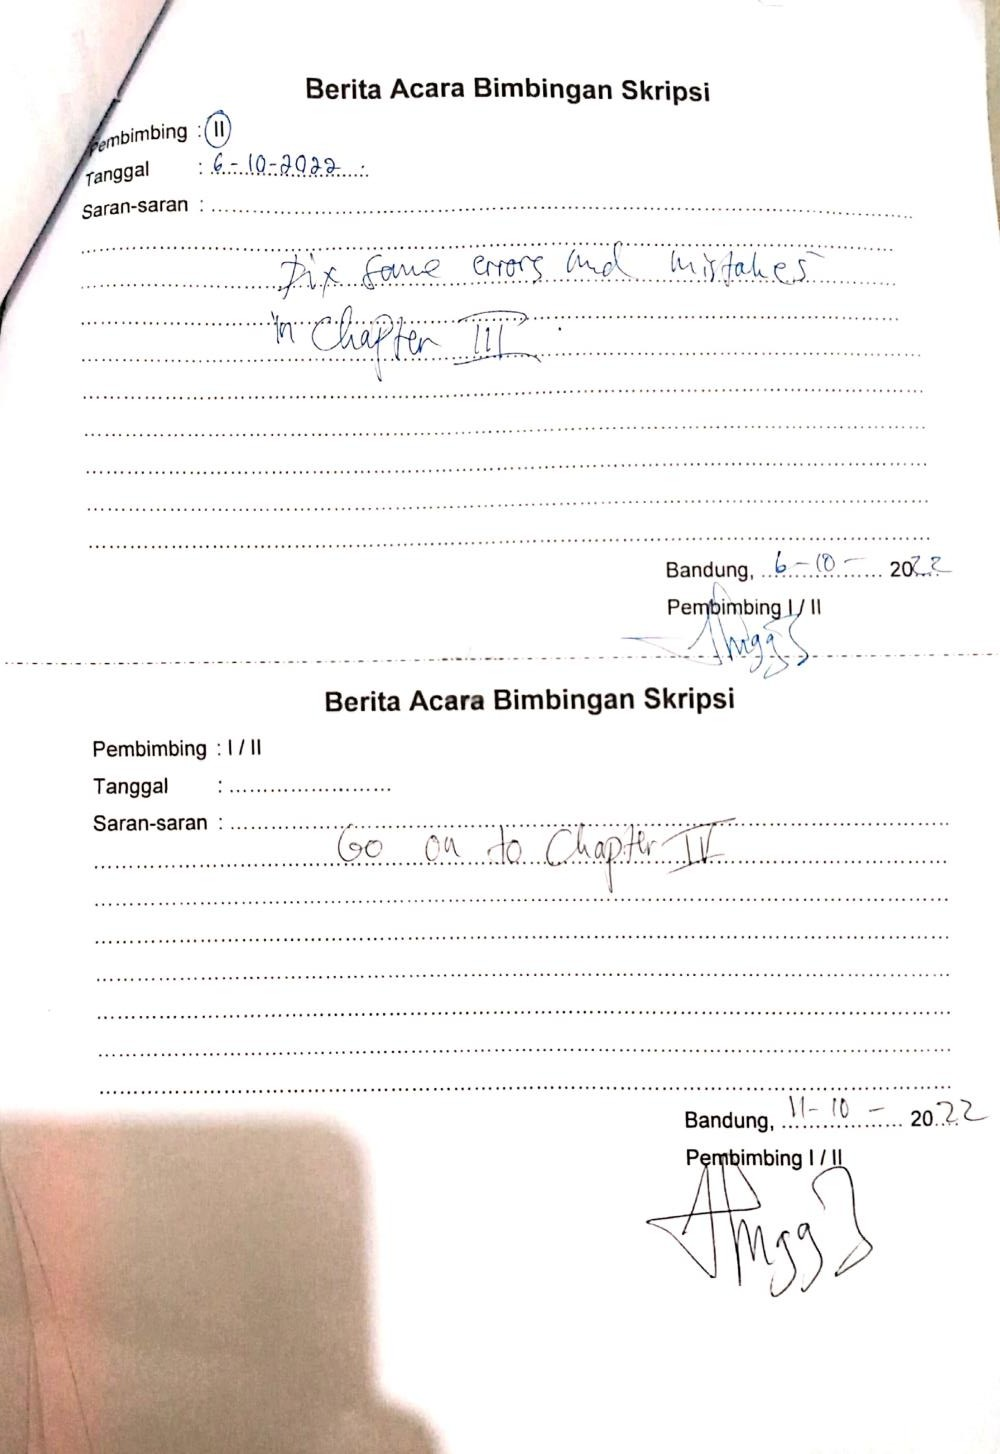 Berita Acara Bimbingan Skripsi
Pembimbing : II
Tanggal : 6-10-2022
Saran-saran :
Fix some errors and mistakes
in Chapter III
Bandung, 6-10-2022
Pembimbing I / II
Berita Acara Bimbingan Skripsi
Pembimbing : I / II
Tanggal :
Saran-saran :
Go on to Chapter IV
Bandung, 11-10-2022
Pembimbing I / II